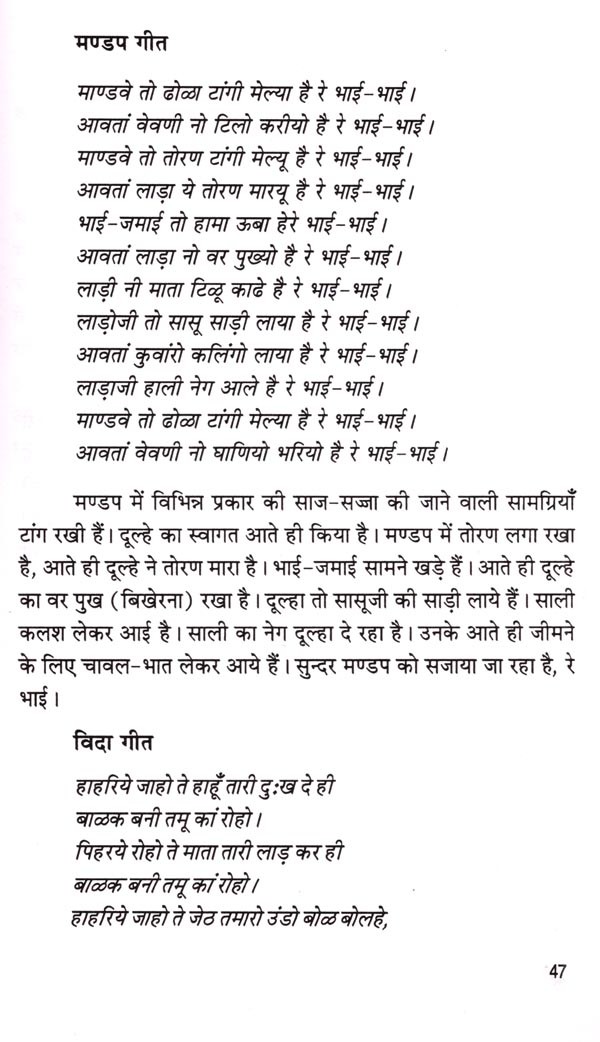 मण्डप गीत
माण्डवे तो ढोळा टांगी मेल्या है रे भाई-भाई।
आवतां वेवणी नो टिलो करीयो है रे भाई-भाई।
माण्डवे तो तोरण टांगी मेल्यू है रे भाई-भाई।
आवतां लाड़ा ये तोरण मारयू है रे भाई-भाई।
भाई-जमाई तो हामा ऊबा हेरे भाई-भाई।
आवतां लाड़ा नो वर पुख्यो है रे भाई-भाई।
लाड़ी नी माता टिळू काढे है रे भाई-भाई।
लाड़ोजी तो सासू साड़ी लाया है रे भाई-भाई।
आवतां कुवांरो कलिंगो लाया है रे भाई-भाई।
लाड़ाजी हाली नेग आले है रे भाई-भाई।
माण्डवे तो ढोळा टांगी मेल्या है रे भाई-भाई।
आवतां वेवणी नो घाणियो भरियो है रे भाई-भाई।
मण्डप में विभिन्न प्रकार की साज-सज्जा की जाने वाली सामग्रियाँ
टांग रखी हैं। दूल्हे का स्वागत आते ही किया है। मण्डप में तोरण लगा रखा
है, आते ही दूल्हे ने तोरण मारा है। भाई-जमाई सामने खड़े हैं। आते ही दूल्हे
का वर पुख (बिखेरना) रखा है। दूल्हा तो सासूजी की साड़ी लाये हैं। साली
कलश लेकर आई है। साली का नेग दूल्हा दे रहा है। उनके आते ही जीमने
के लिए चावल-भात लेकर आये हैं। सुन्दर मण्डप को सजाया जा रहा है, रे
भाई।
विदा गीत
हाहरिये जाहो ते हाहूँ तारी दुःख दे ही
बाळक बनी तमू कां रोहो।
पिहरये रोहो ते माता तारी लाड़ कर ही
बाळक बनी तमू कां रोहो।
हाहरिये जाहो ते जेठ तमारो उंडो बोळ बोलहे,
47